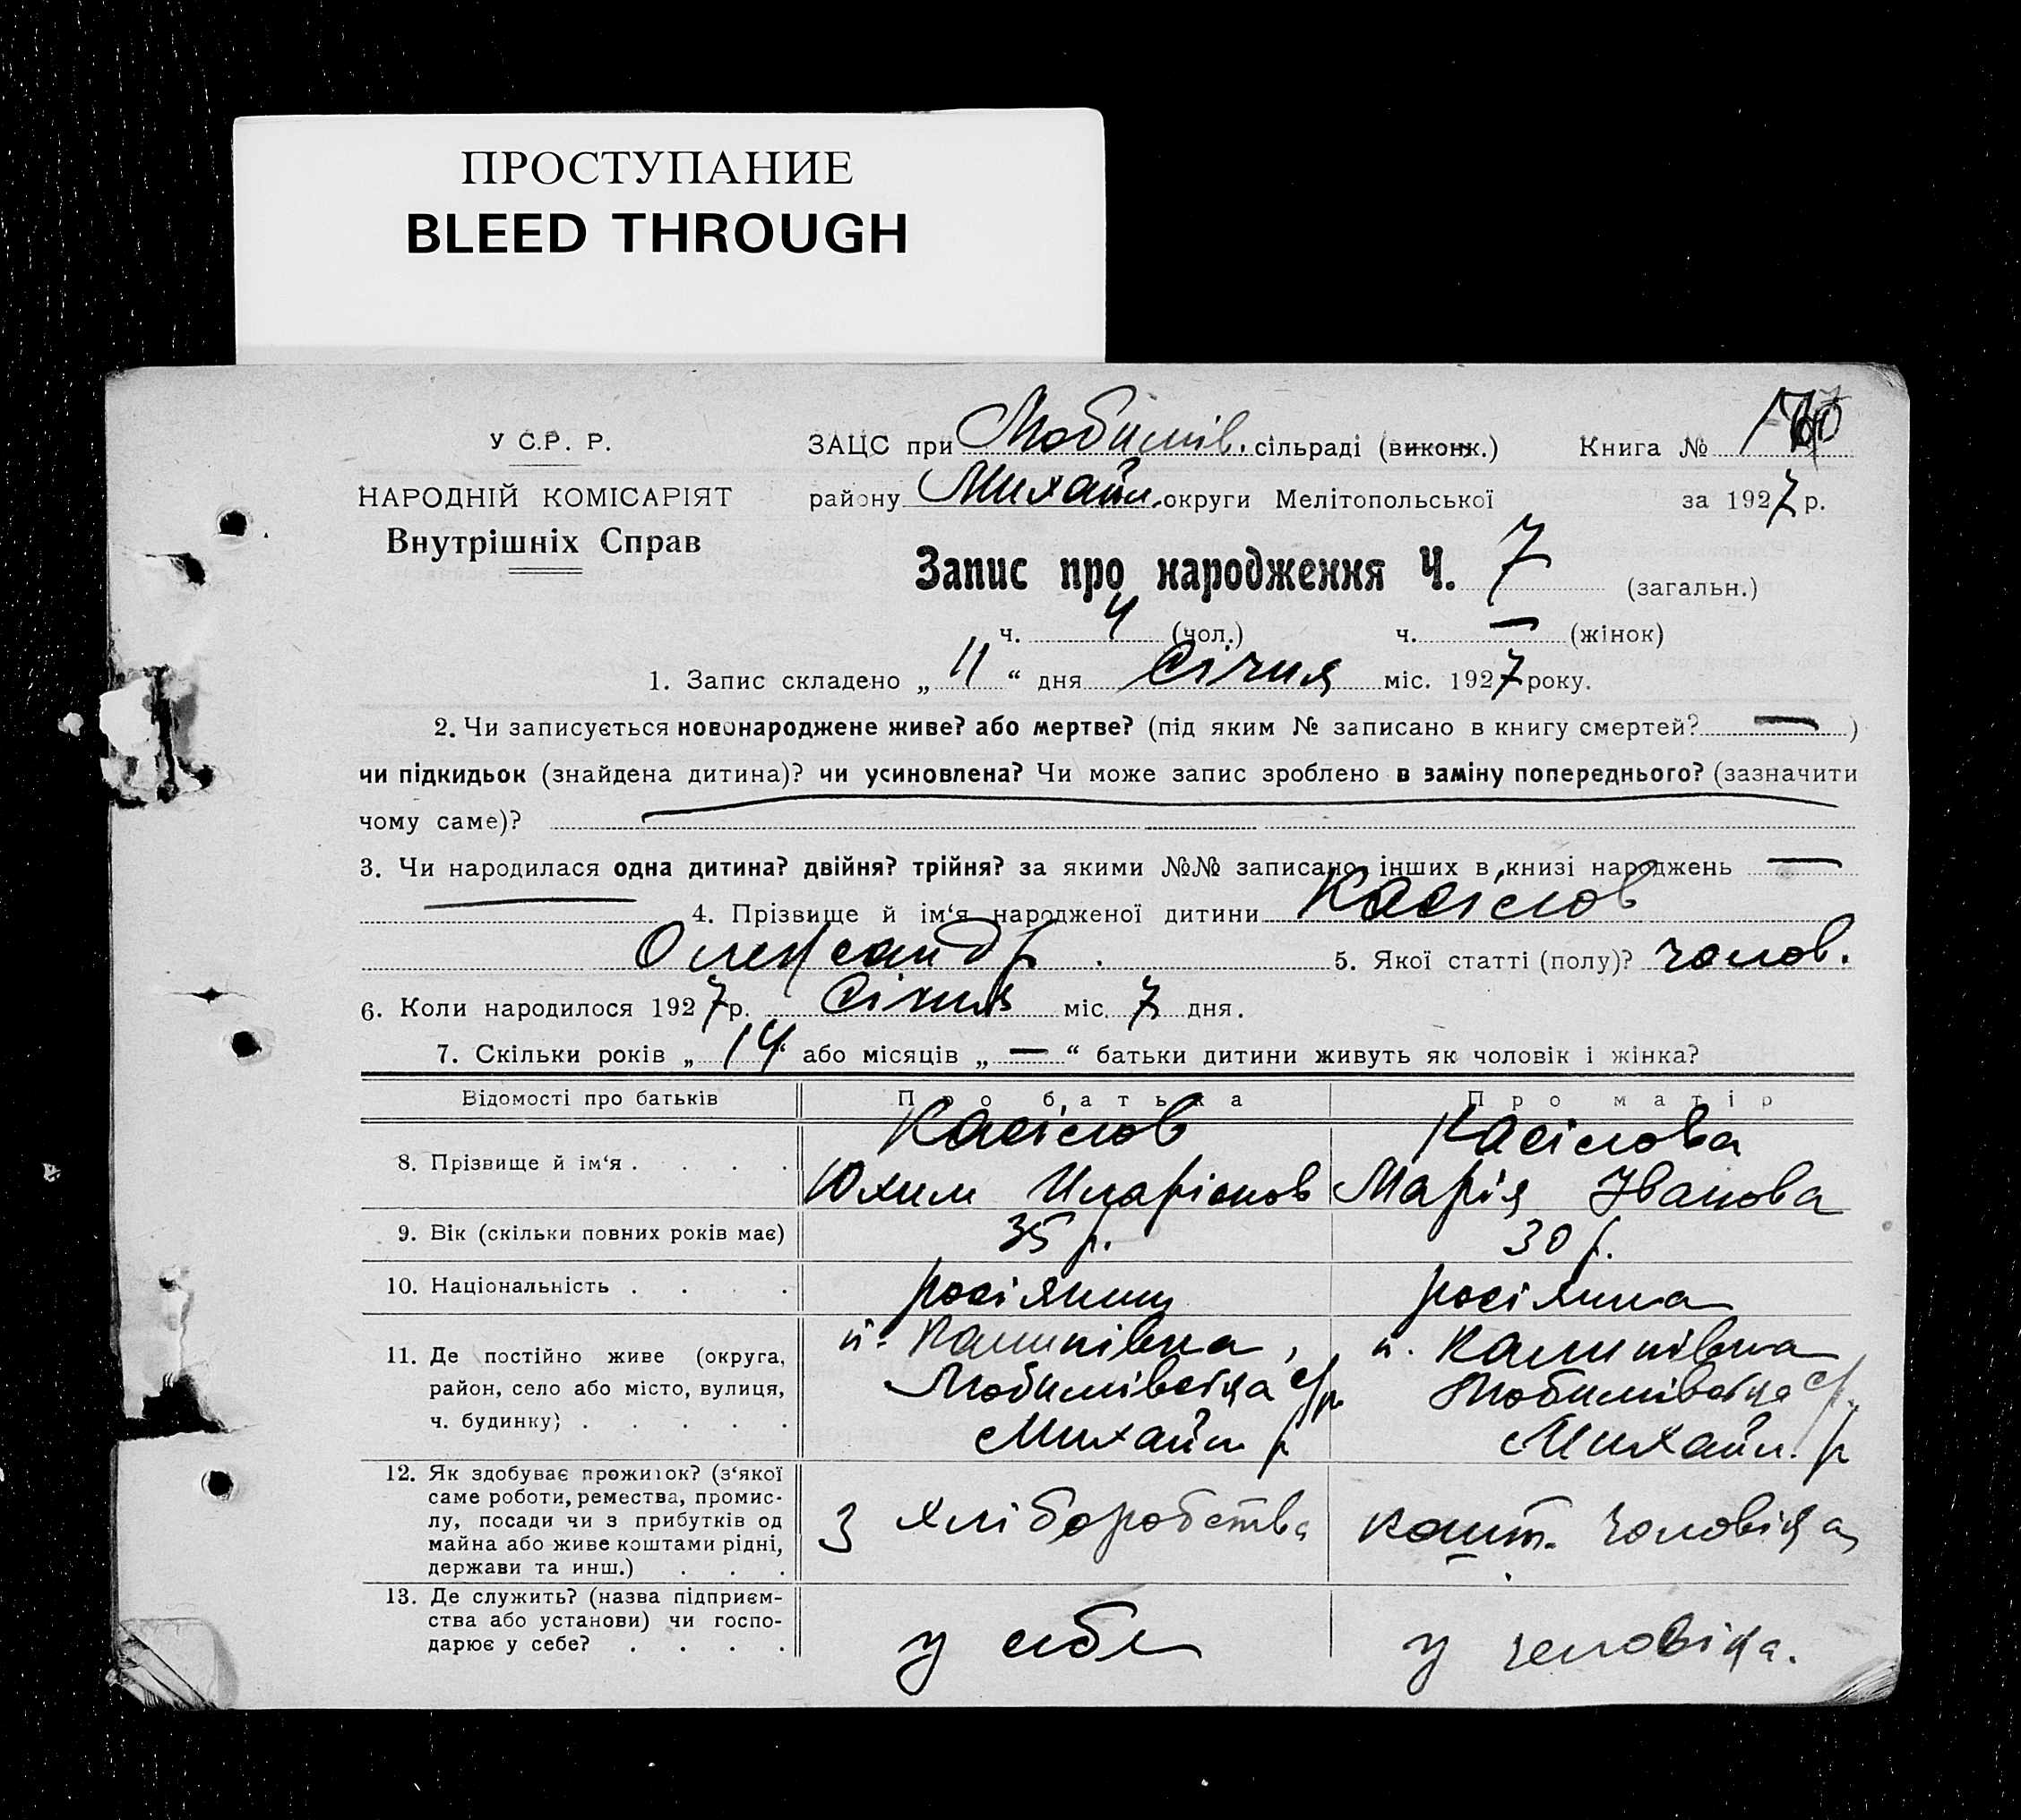 ПРОСТУПАНИЕ
BLEED THROUGH
У С.Р. Р.
НАРОДНІЙ КОМІСАРІЯТ
Внутрішніх Справ
ЗАЦС при Любимів. сільраді (виконк.) Книга №
району Михайл. округи Мелітопольської за 1927 р.
Запис про народження Ч. 7 (загальн.)
ч. 4 (чол.) ч. — (жінок)
1. Запис складено „ 11 “ дня Січня міс. 1927 року.
2. Чи записується новонароджене живе? або мертве? (під яким № записано в книгу смертей? — )
чи підкидьок (знайдена дитина)? чи усиновлена? Чи може запис зроблено в заміну попереднього? (зазначити
чому саме)?
3. Чи народилася одна дитина? двійня? трійня? за якими №№ записано інших в книзі народжень —
— 4. Прізвище й ім‘я народженої дитини Касілов
Олександр. 5. Якої статті (полу)? чолов.
6. Коли народилося 1927 р. Січня міс. 7 дня.
7. Скільки років „ 14 “ або місяців „ — “ батьки дитини живуть як чоловік і жінка?
Відомості про батьків Про батька Про матір
8. Прізвище й ім‘я . . . . Касілов Касілова
Юхим Иларіонов Марія Іванова
9. Вік (скільки повних років має) 35 р. 30 р.
10. Національність . . . . росіянин росіянка
11. Де постійно живе (округа, район, село або місто, вулиця, ч. будинку) . . . . .
п. Калинівка, Любимівська с/р. Михайл р
п. Калинівка Любимівська с/р. Михайл. р
12. Як здобуває прожиток? (з‘якої
саме роботи, ремества, промис-
лу, посади чи з прибутків од
майна або живе коштами рідні,
держави та инш.) . . .
З хліборобства кошт. чоловіка
13. Де служить? (назва підприєм-
ства або установи) чи госпо-
дарює у себе? . . . .
у себе у чоловіка.